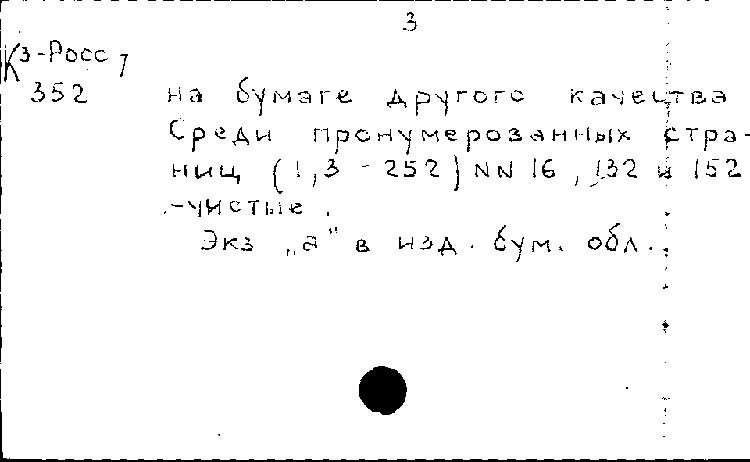 3
K3-Росс 7
352
на бумаге другого качества
Среди пронумерованных стра-
ниц (1,3-252) NN 16, 132 и 152
-чистые.
Экз „а" в изд. бум. обл.